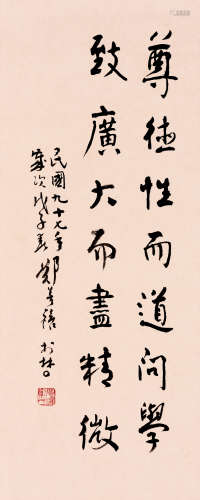 尊德性而道問學
致廣大而盡精微
民國九十七年
歲次戊子鄭善禧於林口